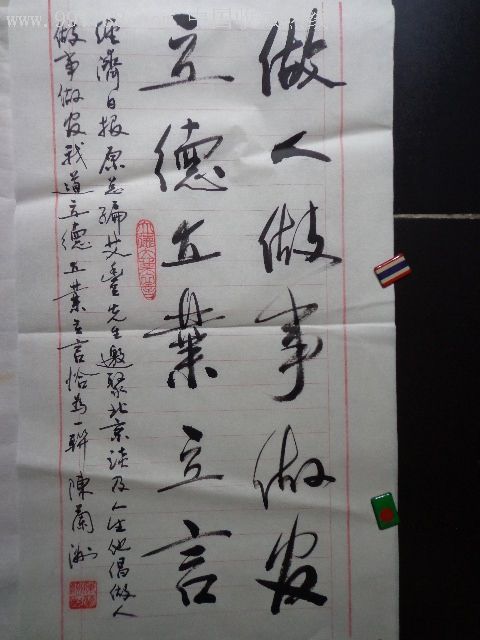 做人做事做官
立德立業立言
经濟日报原总编艾豐先生邀聚北京谈及人生他倡做人
做事做官我道立德立業立言恰为一聯 陳蘭洲